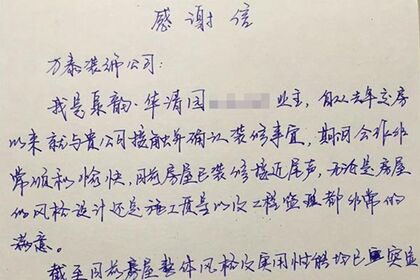 感谢信
万泰装饰公司：
我是泉韵·华清园业主，自从去年交房
以来就与贵公司接触并确认装修事宜，期间合作非
常顺利愉快，目前房屋已装修接近尾声，无论是房屋
的风格设计还是施工质量以及工程监理都非常的
满意。
截至目前房屋整体风格及实用性能均已